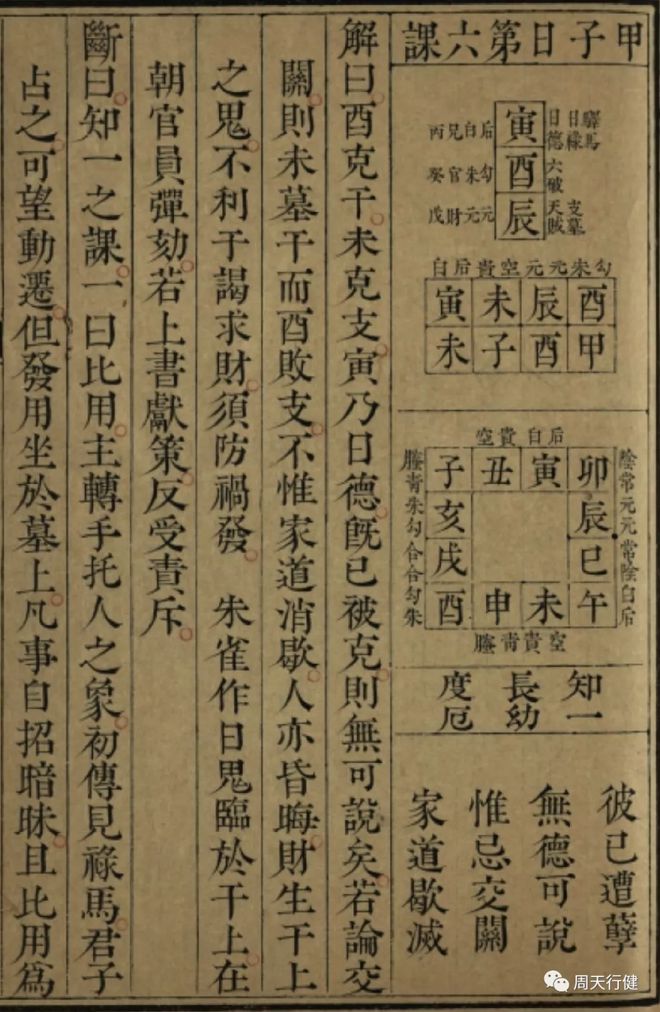 甲子日第六課
驛馬
日祿
日德
寅
丙兄白后
六破
酉
癸官朱勾
支墓
天賊
辰
戊財元元
勾朱元元空貴后白
酉辰未寅
甲酉子未
后白貴空
卯寅丑子
陰常元元常陰白后
辰亥
巳戌
螣青朱勾合合勾朱
午未申酉
空貴青螣
知一
長幼
度厄
彼已遭孽
無德可說
惟忌交關
家道歇滅
解曰酉克干未克支寅乃日德既已被克則無可說矣若論交
關則未墓干而酉敗支不惟家道消歇人亦昏晦財生干上
之鬼不利于謁求財須防禍發　朱雀作日鬼臨於干上在
朝官員彈劾若上書獻策反受責斥
斷曰知一之課一曰比用主轉手托人之象初傳見祿馬君子
占之可望動遷但發用坐於墓上凡事自招暗昧且比用為
周天行健